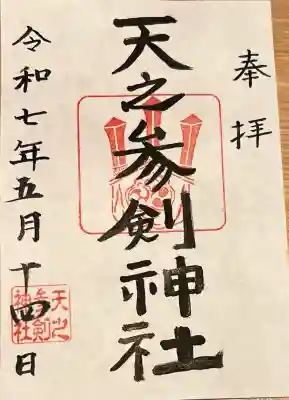 奉拝
天之参剣神社
令和七年五月十四日
天之
参剣
神社